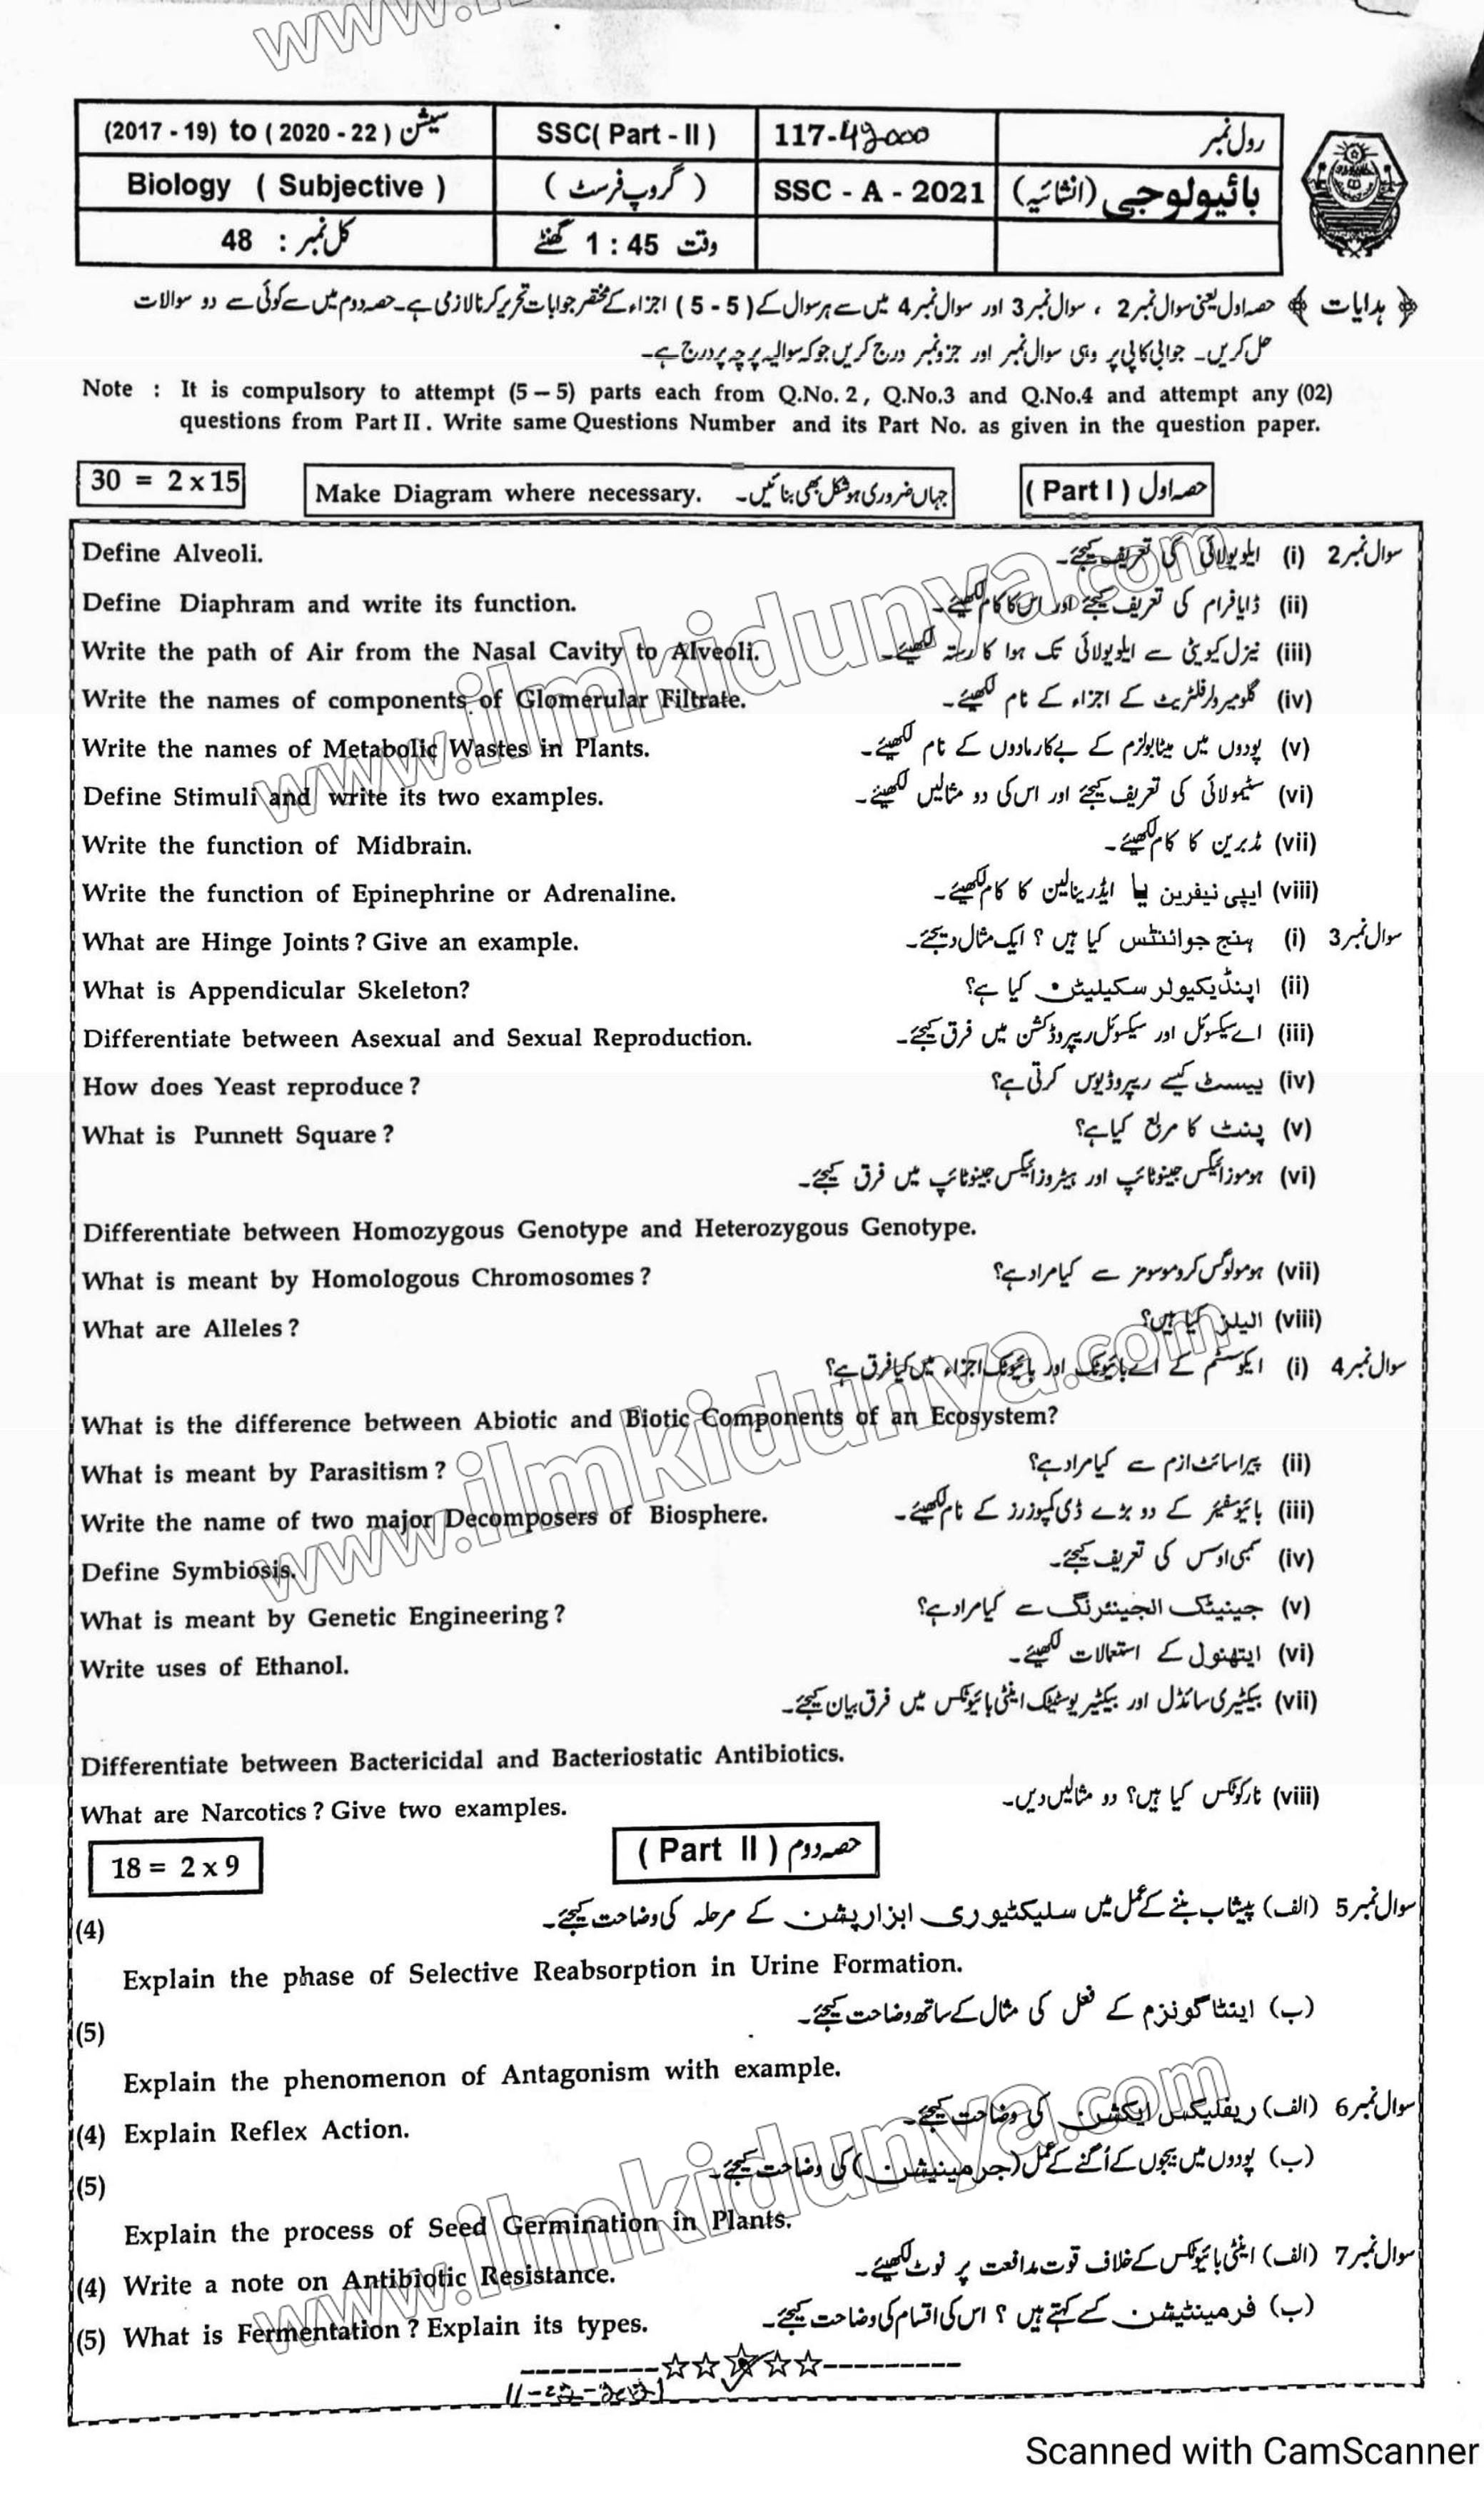 www.il
(2017 - 19) to ( 2020 - 22 ) سیشن
SSC( Part - II )
117-
رول نمبر
Biology ( Subjective )
( گروپ فرسٹ )
SSC - A - 2021
بائیولوجی (انشائیہ)
کل نمبر : 48
وقت 1 : 45 گھنٹے
﴿ ہدایات ﴾ حصہ اول یعنی سوال نمبر 2 ، سوال نمبر 3 اور سوال نمبر 4 میں سے ہر سوال کے ( 5 - 5 ) اجزاء کے مختصر جوابات تحریر کرنا لازمی ہے۔ حصہ دوم میں سے کوئی سے دو سوالات
حل کریں۔ جوابی کاپی پر وہی سوال نمبر اور جزو نمبر درج کریں جو کہ سوالیہ پرچہ پر درج ہے۔
Note : It is compulsory to attempt (5 – 5) parts each from Q.No. 2 , Q.No.3 and Q.No.4 and attempt any (02)
questions from Part II . Write same Questions Number and its Part No. as given in the question paper.
30 = 2 x 15
Make Diagram where necessary. جہاں ضروری ہو شکل بھی بنائیں۔
( Part I ) حصہ اول
Define Alveoli. سوال نمبر 2 (i) ایلویولائی کی تعریف کیجئے۔
Define Diaphram and write its function. (ii) ڈایافرام کی تعریف کیجئے اور اس کا کام لکھیئے۔
Write the path of Air from the Nasal Cavity to Alveoli. (iii) نیزل کیویٹی سے ایلویولائی تک ہوا کا رستہ لکھیئے۔
Write the names of components of Glomerular Filtrate. (iv) گلومیرولر فلٹریٹ کے اجزاء کے نام لکھیئے۔
Write the names of Metabolic Wastes in Plants. (v) پودوں میں میٹابولزم کے بےکار مادوں کے نام لکھیئے۔
Define Stimuli and write its two examples. (vi) سٹیمولائی کی تعریف کیجئے اور اس کی دو مثالیں لکھیئے۔
Write the function of Midbrain. (vii) مڈبرین کا کام لکھیئے۔
Write the function of Epinephrine or Adrenaline. (viii) ایپی نیفرین یا ایڈرینالین کا کام لکھیئے۔
What are Hinge Joints ? Give an example. سوال نمبر 3 (i) ہنج جوائنٹس کیا ہیں ؟ ایک مثال دیجئے۔
What is Appendicular Skeleton? (ii) اپنڈیکیولر سکیلیٹن کیا ہے؟
Differentiate between Asexual and Sexual Reproduction. (iii) اے سیکسوئل اور سیکسوئل ریپروڈکشن میں فرق کیجئے۔
How does Yeast reproduce ? (iv) ییسٹ کیسے ریپروڈیوس کرتی ہے؟
What is Punnett Square ? (v) پنٹ کا مربع کیا ہے؟
(vi) ہوموزائیگس جینوٹائپ اور ہیٹروزائیگس جینوٹائپ میں فرق کیجئے۔
Differentiate between Homozygous Genotype and Heterozygous Genotype.
What is meant by Homologous Chromosomes ? (vii) ہومولوگس کروموسومز سے کیا مراد ہے؟
What are Alleles ? (viii) الیلز کیا ہیں؟
سوال نمبر 4 (i) ایکوسسٹم کے اے بائیوٹک اور بائیوٹک اجزاء میں کیا فرق ہے؟
What is the difference between Abiotic and Biotic Components of an Ecosystem?
What is meant by Parasitism ? (ii) پیراسائٹ ازم سے کیا مراد ہے؟
Write the name of two major Decomposers of Biosphere. (iii) بائیوسفیئر کے دو بڑے ڈی کمپوزرز کے نام لکھیئے۔
Define Symbiosis. (iv) سمبی اوسس کی تعریف کیجئے۔
What is meant by Genetic Engineering ? (v) جینیٹک انجینئرنگ سے کیا مراد ہے؟
Write uses of Ethanol. (vi) ایتھنول کے استعمالات لکھیئے۔
(vii) بیکٹیری سائڈل اور بیکٹیریوسٹیٹک اینٹی بائیوٹکس میں فرق بیان کیجئے۔
Differentiate between Bactericidal and Bacteriostatic Antibiotics.
What are Narcotics ? Give two examples. (viii) نارکوٹکس کیا ہیں؟ دو مثالیں دیں۔
18 = 2 x 9
( Part II ) حصہ دوم
(4) سوال نمبر 5 (الف) پیشاب بننے کے عمل میں سلیکٹیو ری ابزارپشن کے مرحلہ کی وضاحت کیجئے۔
Explain the phase of Selective Reabsorption in Urine Formation.
(5) (ب) اینٹاگونزم کے فعل کی مثال کے ساتھ وضاحت کیجئے۔
Explain the phenomenon of Antagonism with example.
(4) Explain Reflex Action. سوال نمبر 6 (الف) ریفلیکس ایکشن کی وضاحت کیجئے۔
(5) (ب) پودوں میں بیجوں کے اُگنے کے عمل (جرمینیشن) کی وضاحت کیجئے۔
Explain the process of Seed Germination in Plants.
(4) Write a note on Antibiotic Resistance. سوال نمبر 7 (الف) اینٹی بائیوٹکس کے خلاف قوت مدافعت پر نوٹ لکھیئے۔
(5) What is Fermentation ? Explain its types. (ب) فرمینٹیشن کسے کہتے ہیں ؟ اس کی اقسام کی وضاحت کیجئے۔
www.ilmkidunya.com
www.ilmkidunya.com
www.ilmkidunya.com
Scanned with CamScanner